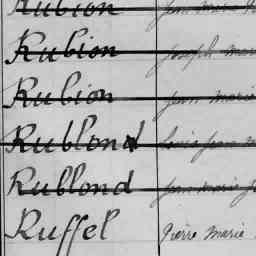 Rubion Jean Marie
Rubion Joseph Marie
Rubion Jean Marie
Rublond Louis Jean M
Rublond Jean Marie
Ruffel Pierre Marie